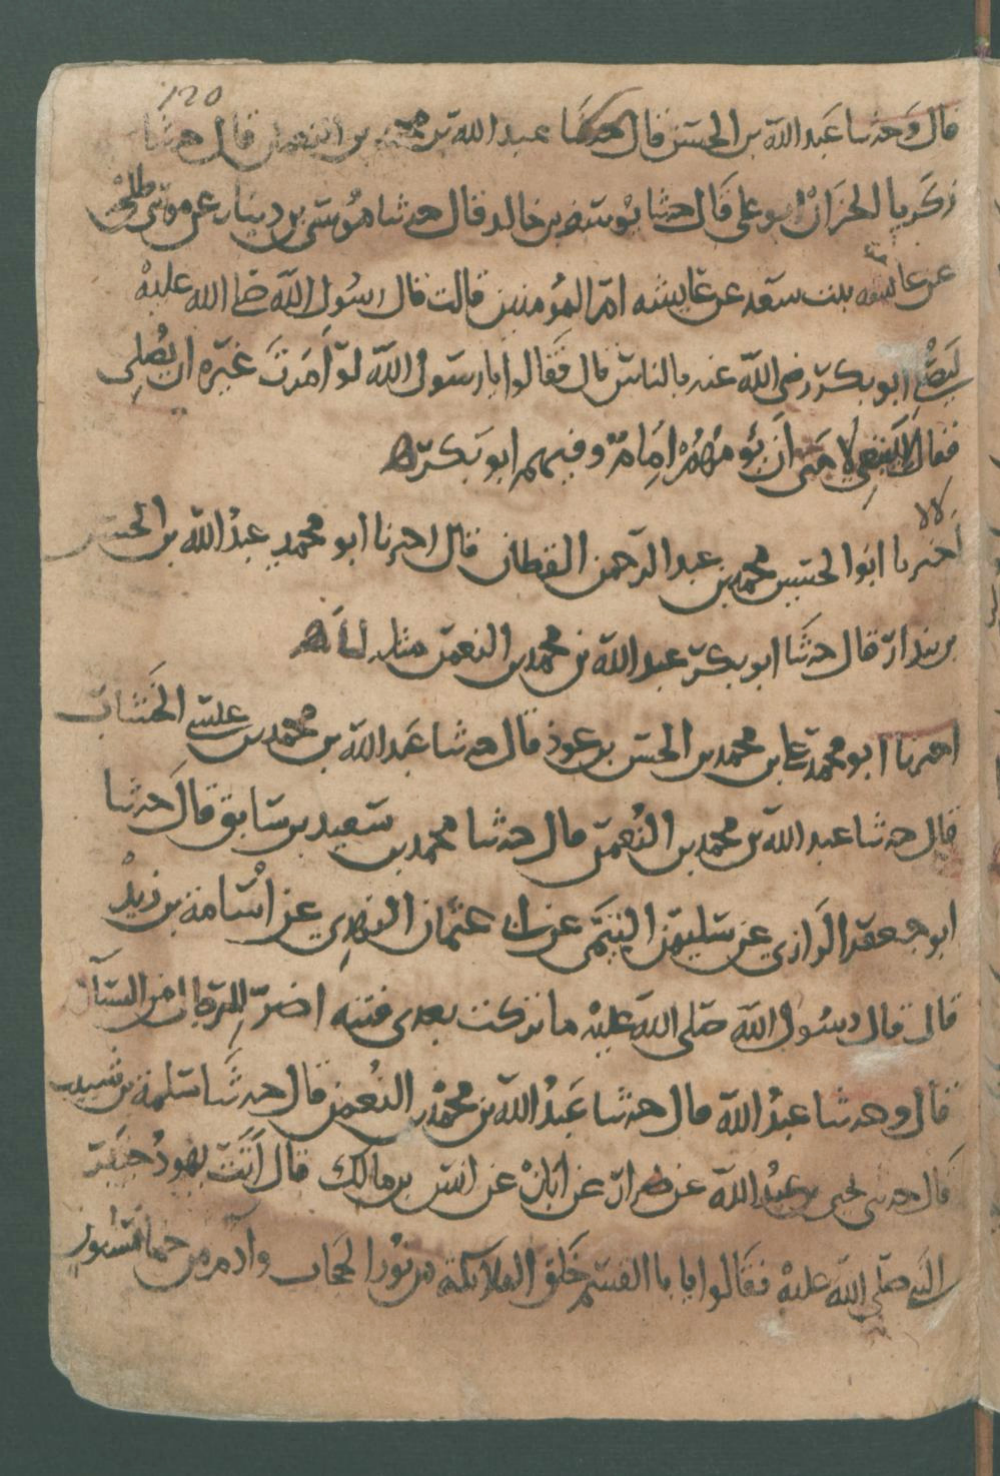 120
قال وحدثنا عبد الله بن الحسن قال حدثنا عبد الله بن محمد بن النعمن قال حدثنا
زكريا الخزاز ابو علي قال حدثنا يوسف بن خالد قال حدثنا موسى بن دينار عن موسى بن طلحه
عن عائشه بنت سعد عن عايشه ام المؤمنين قالت قال رسول الله صلى الله عليه
ليصل ابو بكر رضي الله عنه بالناس قال فقالوا يا رسول الله لو امرت غيره ان يصلي
فقال لا ينبغي لامتي ان يؤمهم امام وفيهم ابو بكر ه
اخبرنا ابو الحسين محمد بن عبد الرحمن القطان قال اخبرنا ابو محمد عبد الله بن الحسن
بن بندار قال حدثنا ابو بكر عبد الله بن محمد بن النعمن
اخبرنا ابو محمد علي بن محمد بن الحسن بن عوذ قال حدثنا عبد الله بن محمد بن عيسى الخشاب
قال حدثنا عبد الله بن محمد بن النعمن قال حدثنا محمد بن سعيد بن سابق قال حدثنا
ابو جعفر الرازي عن سليمن التيمي عن ابي عثمان النهدي عن اسامة بن زيد
قال قال رسول الله صلى الله عليه ما تركت بعدي فتنه اضر للرجال من النساء
قال وحدثنا عبد الله قال حدثنا عبد الله بن محمد بن النعمن قال حدثنا سلمة بن شبيب
قال حدثني يحيى بن عبد الله عن ضرار عن ابان عن انس بن مالك قال اتت يهود خيبر
النبي صلى الله عليه فقالوا يا با القسم خلق الملائكة من نور الحجاب وادم من حما مسنون